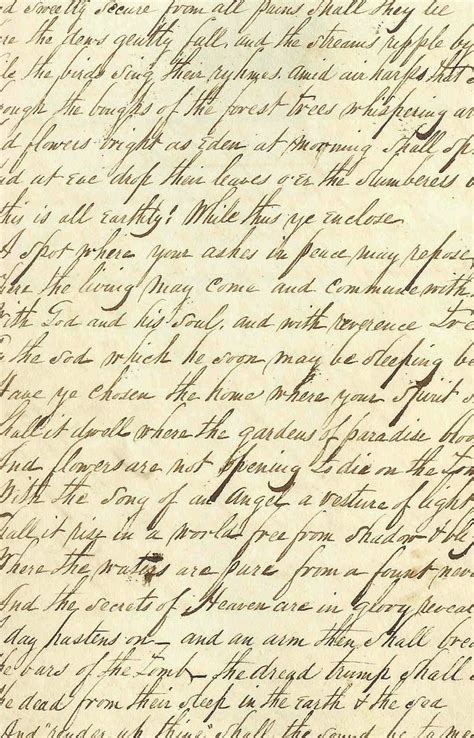 d sweetly secure from all pains shall they lie
re the dews gently fall, and the streams ripple by
le the birds sing their rythmes. amid air harps that
ough the boughs of the forest trees whispering ar
d flowers bright as Eden at morning shall sp
nd at Eve drop their leaves o'er the slumberers
this is all Earthly! While thus ye enclose
A spot where your ashes in peace may repose
ere the living may come and commune with
With God and his soul, and with reverence
the sod which he soon may be sleeping be
Have ye chosen the home where your spirit s
Shall it dwell where the gardens of paradise bloo
And flowers are not opening to die on the Tom
With the song of an Angel a vesture of light
Shall it rise in a world free from shadow &
Where the waters are pure from a fount neve
And the secrets of Heaven are in glory reveal
day hastens on — and an arm then shall brea
he bars of the Tomb — the dread trump shall
he dead from their sleep in the Earth & the Sea
And "render up thine" shall the sound be to m